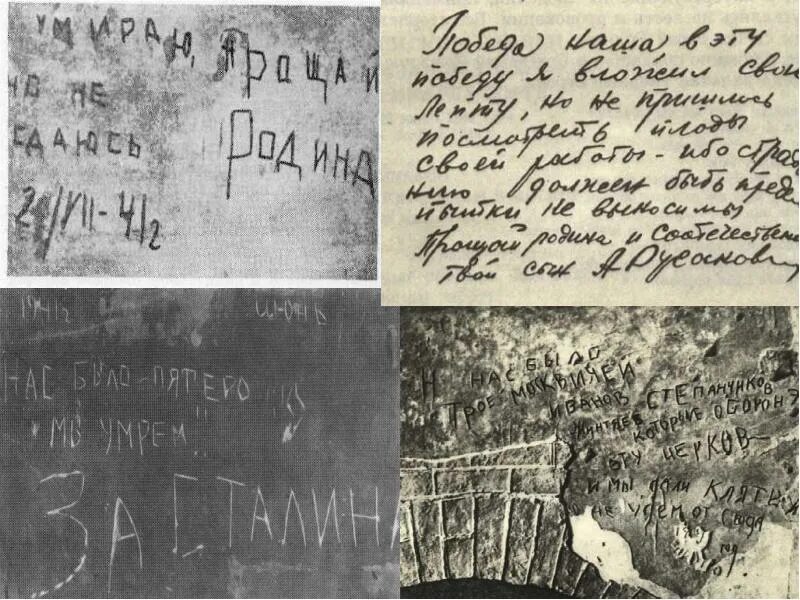 УМИРАЮ,
НО НЕ
СДАЮСЬ
ПРОЩАЙ
РОДИНА
20/VII-41г
Победа наша, в эту
победу я вложил свою
лепту, но не пришлось
посмотреть плоды
своей работы - ибо страд
нию должен быть пред
пытки не выносимы
Прощай родина и соотечествен
твой сын А Русанов
1941г ИЮНЬ
НАС БЫЛО ПЯТЕРО
МЫ УМРЕМ
ЗА СТАЛИНА
НАС БЫЛО
ТРОЕ МОСКВИЧЕЙ
ИВАНОВ СТЕПАНЧИКОВ
ЖУНТЯЕВ КОТОРЫЕ ОБОРОН
ЭТУ ЦЕРКОВ
И МЫ ДАЛИ КЛЯТВУ
НЕ УЙДЕМ ОТ СЮДА
1941 ГОД